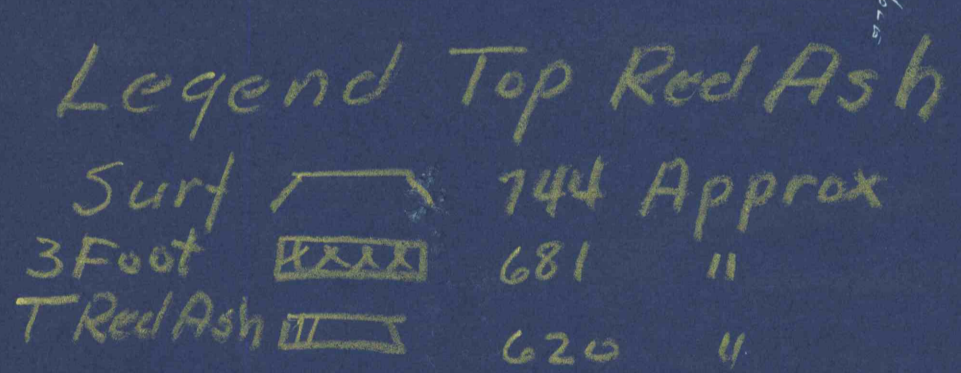 Legend Top Red Ash
Surf 744 Approx
3 Foot 681 "
T Red Ash 620 "